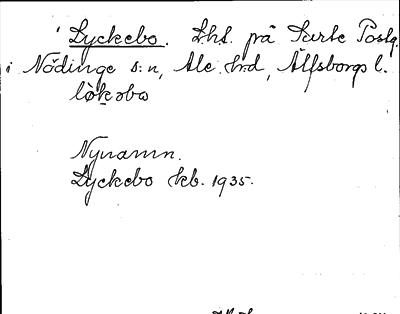 Lyckebo. Lhs. på Surte Postg.
i Nödinge s:n, Ale hrd, Älfsborgs l.
Nynamn.
Lyckebo kb. 1935.